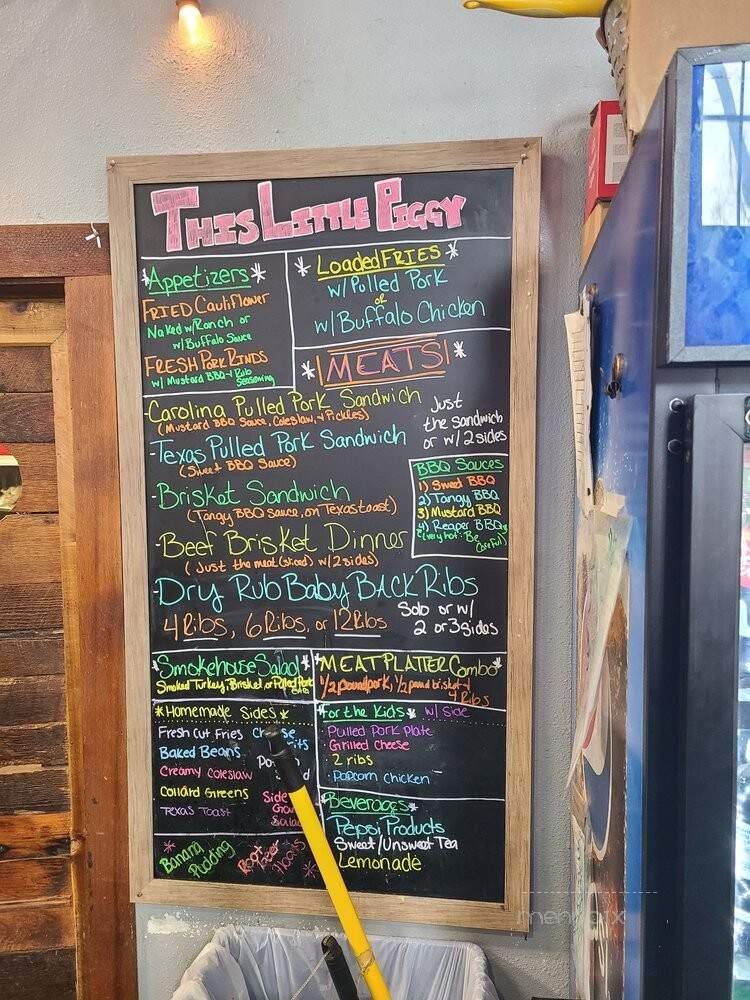 This Little Piggy
*Appetizers*
FRIED Cauliflower
Naked w/Ranch or
w/ Buffalo Sauce
FRESH Pork RINDS
w/ Mustard BBQ + Rub
Seasoning
* Loaded FRIES *
w/ Pulled Pork
or
w/ Buffalo Chicken
* MEATS *
-Carolina Pulled Pork Sandwich
(Mustard BBQ Sauce, Coleslaw, + Pickles)
-Texas Pulled Pork Sandwich
(Sweet BBQ Sauce)
Just
the sandwich
or w/ 2 sides
-Brisket Sandwich
(Tangy BBQ Sauce, on Texas toast)
-Beef Brisket Dinner
(Just the meat (sliced) w/ 2 sides)
BBQ Sauces
1) Sweet BBQ
2) Tangy BBQ
3) Mustard BBQ
4) Reaper BBQ
(very hot: Be
Careful)
-Dry Rub Baby Back Ribs
4 Ribs, 6 Ribs, or 12 Ribs
Solo or w/
2 or 3 sides
*Smokehouse Salad*
Smoked Turkey, Brisket or Pulled Pork
*MEAT PLATTER Combo*
1/2 pound pork, 1/2 pound brisket +
4 Ribs
*Homemade Sides*
Fresh Cut Fries
Baked Beans
Creamy Coleslaw
Collard Greens
Texas Toast
Side
*For the Kids* w/ side
· Pulled Pork Plate
· Grilled Cheese
· 2 ribs
· Popcorn Chicken
*Beverages*
Pepsi Products
Sweet/Unsweet Tea
Lemonade
* Banana
Pudding
Root
Beer
Floats *
menupix